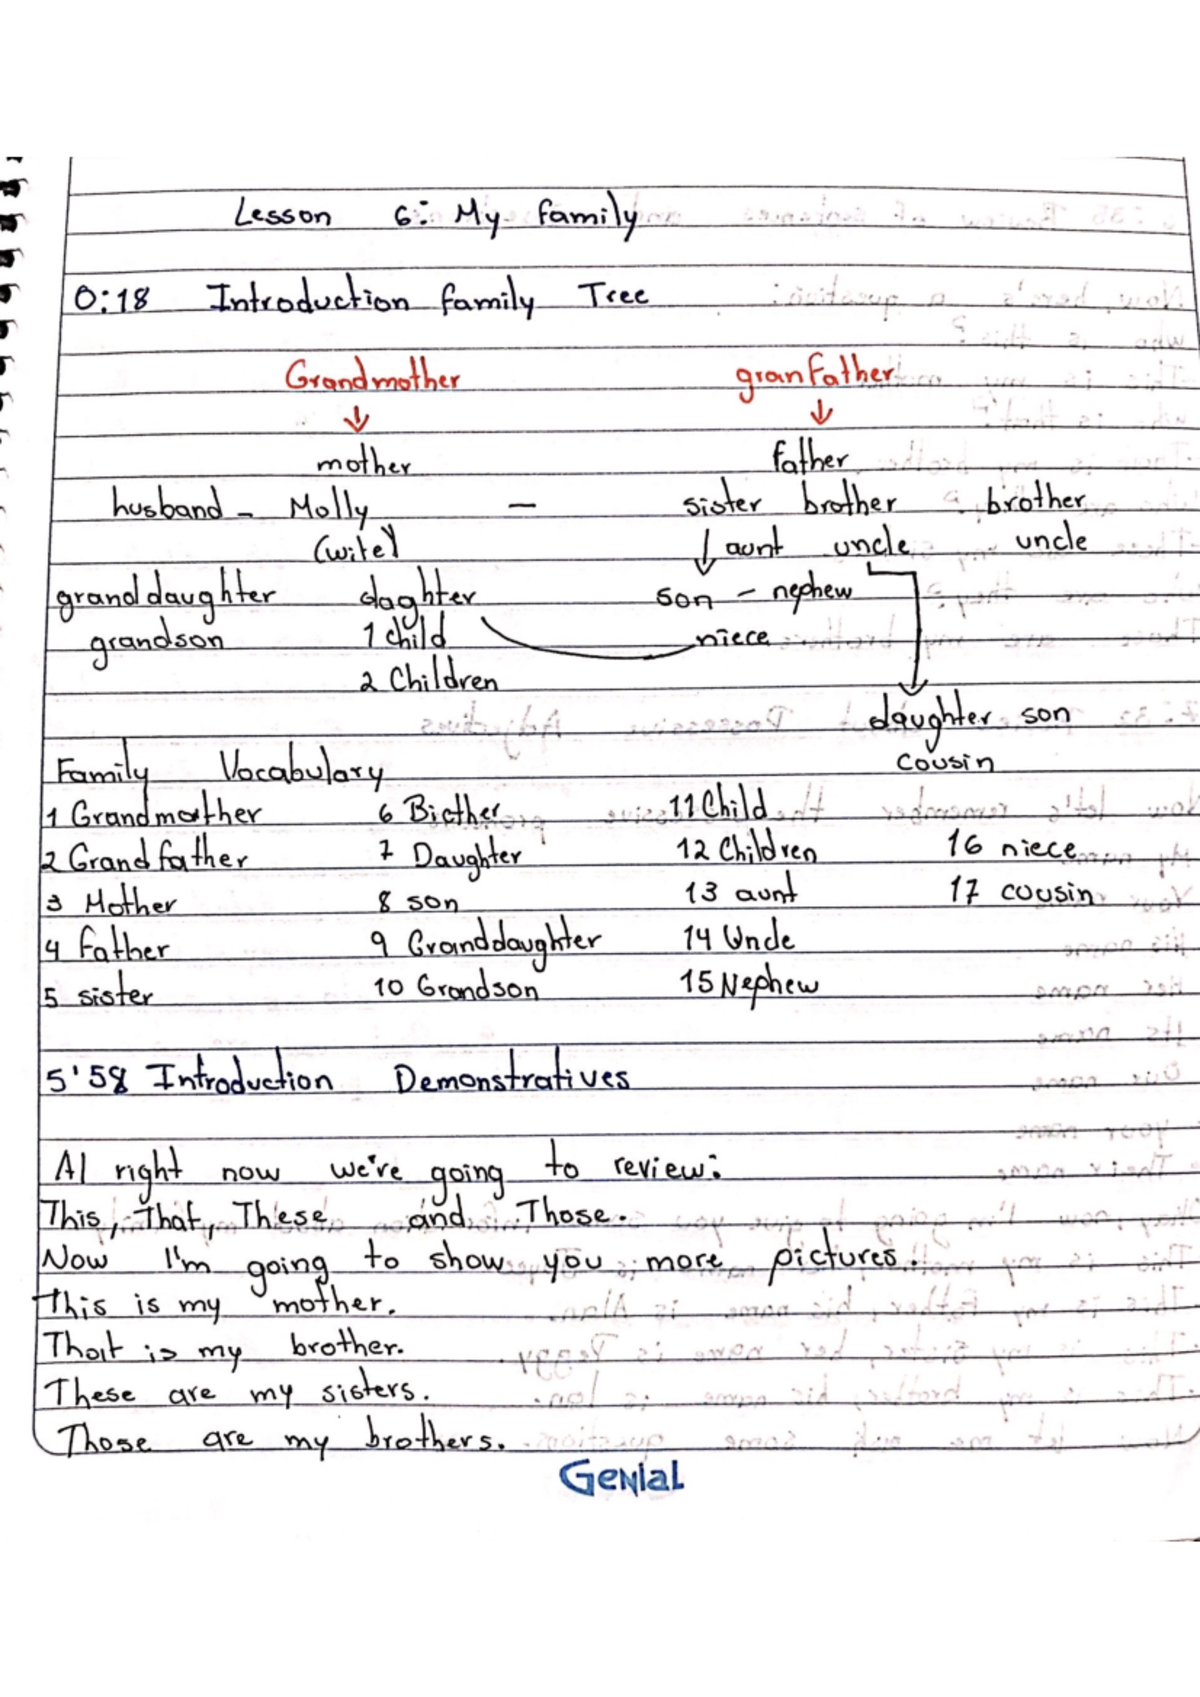 Lesson 6: My family
0:18 Introduction family Tree
Grandmother granfather
mother father
husband - Molly — sister brother brother
(wife) aunt uncle uncle
granddaughter daghter son - nephew
grandson 1 child niece
2 Children
daughter son
Family Vocabulary cousin
1 Grandmother 6 Brother 11 Child
2 Grandfather 7 Daughter 12 Children 16 niece
3 Mother 8 son 13 aunt 17 cousin
4 Father 9 Granddaughter 14 Uncle
5 sister 10 Grandson 15 Nephew
5'58 Introduction Demonstratives
Al right now we're going to review:
This, That, These and Those.
Now I'm going to show you more pictures.
This is my mother.
That is my brother.
These are my sisters.
Those are my brothers.
Genial